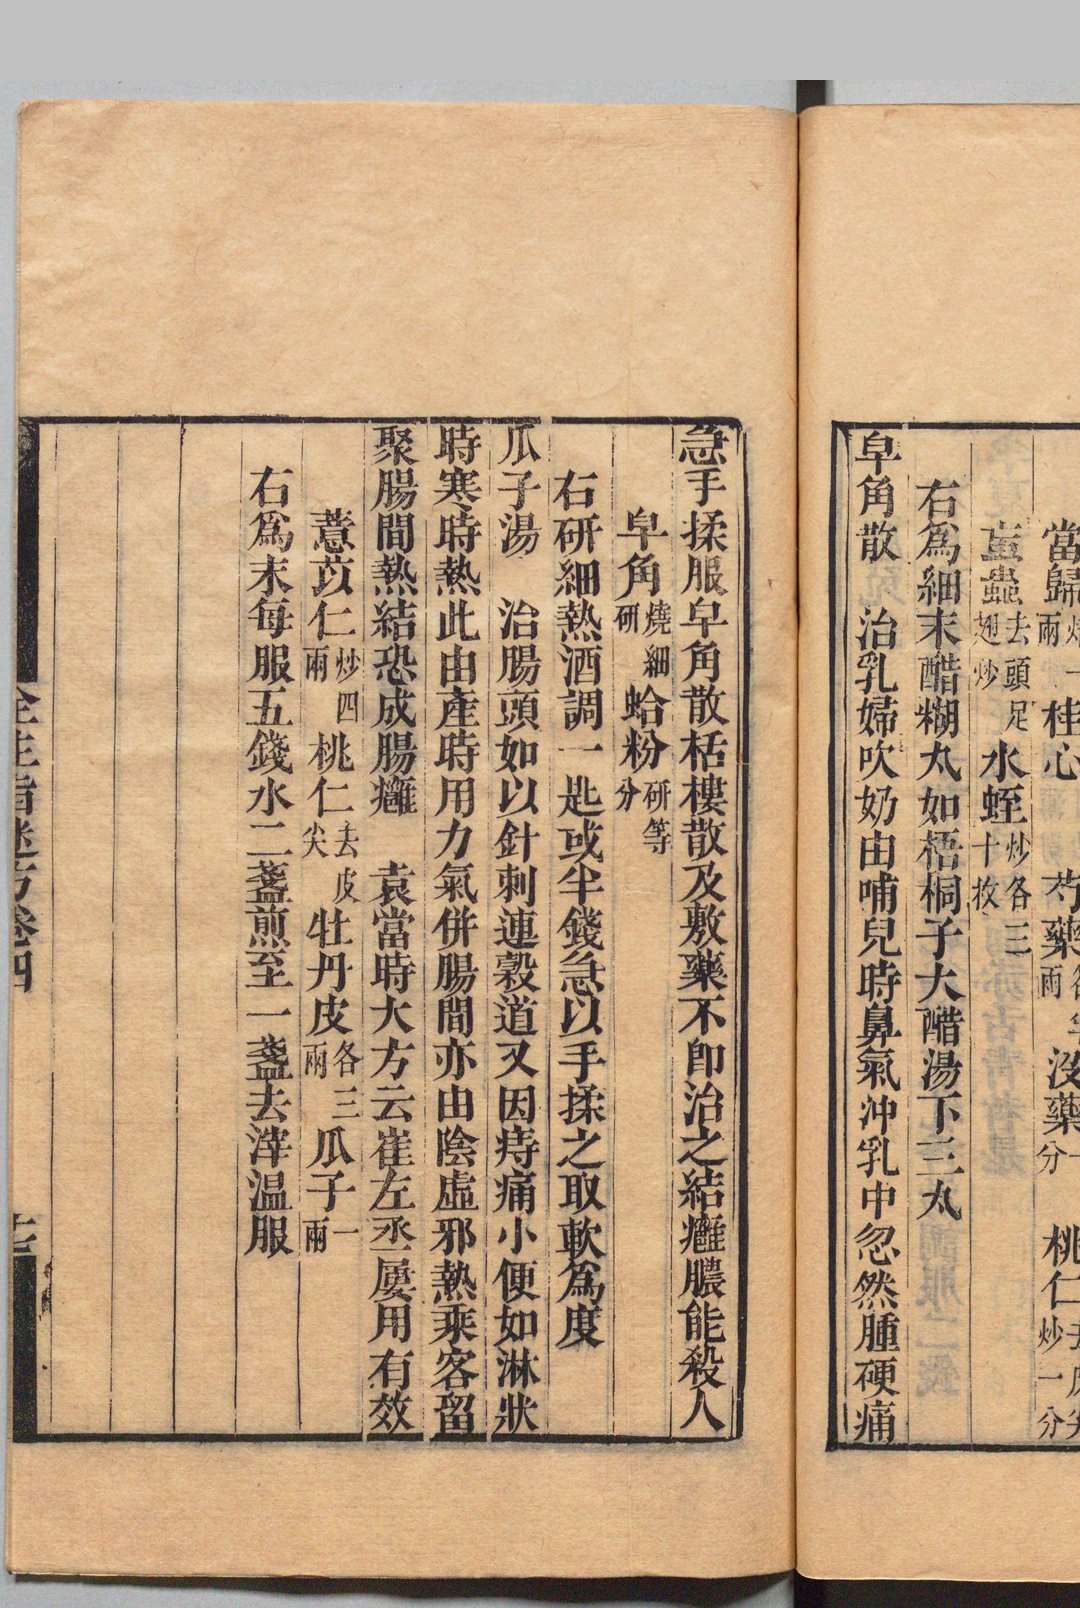 當歸炒一兩桂心 芍藥各半兩沒藥一分 桃仁去皮尖炒一分
䖟蟲去頭足翅炒水蛭炒各三十枚
右爲細末醋糊丸如梧桐子大醋湯下三丸
皁角散 治乳婦吹奶由哺兒時鼻氣沖乳中忽然腫硬痛
急手揉服皁角散栝樓散及敷藥不卽治之結癰膿能殺人
皁角燒細研蛤粉研等分
右研細熱酒調一匙或半錢急以手揉之取軟爲度
瓜子湯 治腸頭如以針刺連穀道又因痔痛小便如淋狀
時寒時熱此由產時用力氣併腸間亦由陰虛邪熱乘客留
聚腸間熱結恐成腸癰 袁當時大方云崔左丞屢用有效
薏苡仁炒四兩桃仁去皮尖牡丹皮各三兩瓜子一兩
右爲末每服五錢水二盞煎至一盞去滓温服
全生指迷方卷四